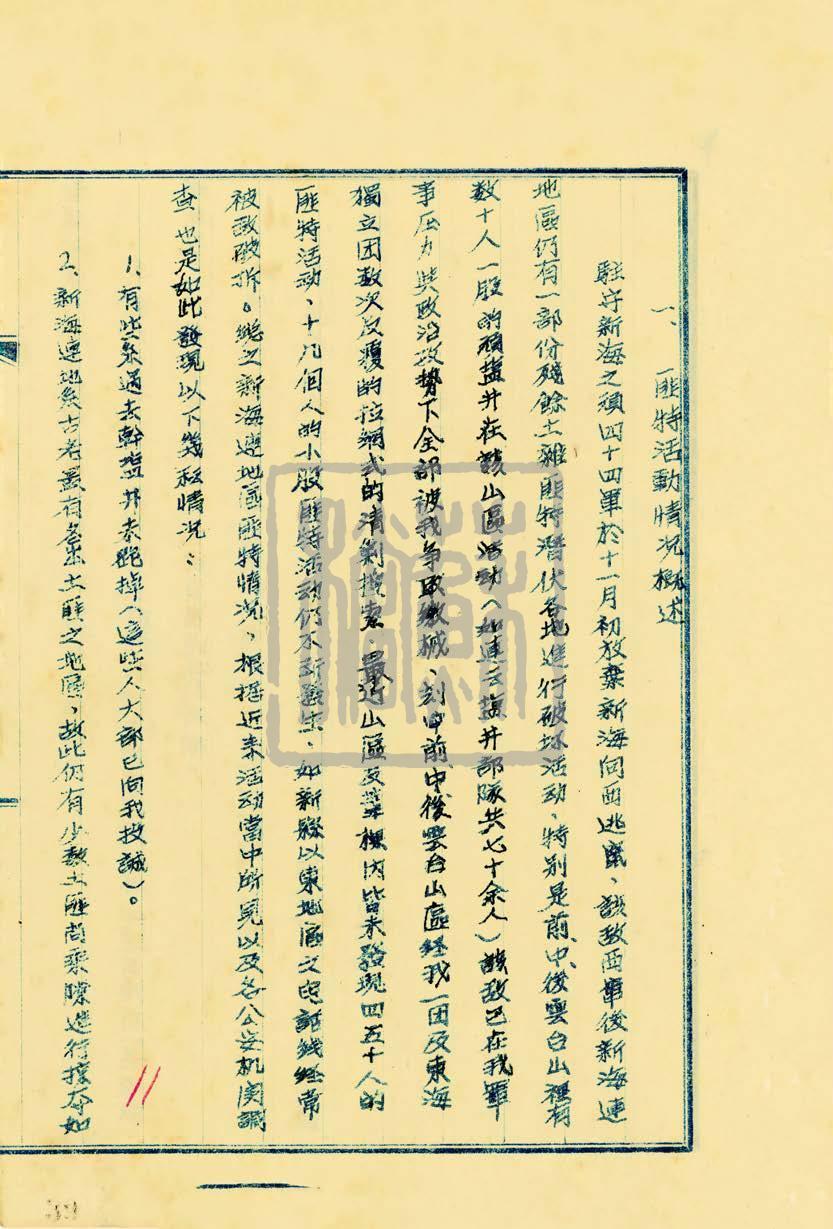 一、匪特活動情况概述
駐守新海之頑四十四軍於十一月初放棄新海向西逃竄、該敌西竄後新海連
地區仍有一部份殘餘土雜匪特潛伏各地進行破坏活动、特别是前、中、後雲台山裡有
数十人一股的頑塩井在該山區活动（如連云塩井部隊共七十余人）該敌已在我軍
事压力與政治攻勢下全部被我争取缴械、刻由前中後雲台山區经我一团及東海
獨立团数次反覆的拉網式的清剿搜索、最近山區及内皆未發現四五十人的
匪特活动、十几個人的小股匪特活动仍不断發生、如新縣以東地區之电話线经常
被敌破拆。總之新海連地區匪特情况、根据近来活动當中所見以及各公安机関調
查也是如此發現以下幾种情况：
1、有些系過去幹塩井未跑掉（這些人大部已向我投誠）。
2、新海連地區古老最有名出土匪之地區，故此仍有少数土匪尚乘隙進行搶夺如
11